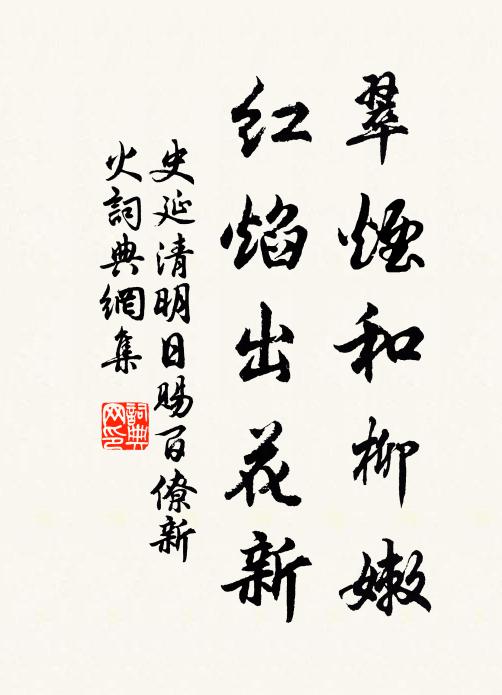 翠煙和柳嫩
紅焰出花新
史延清明日賜百僚新
火詞典網集
詞典
网印